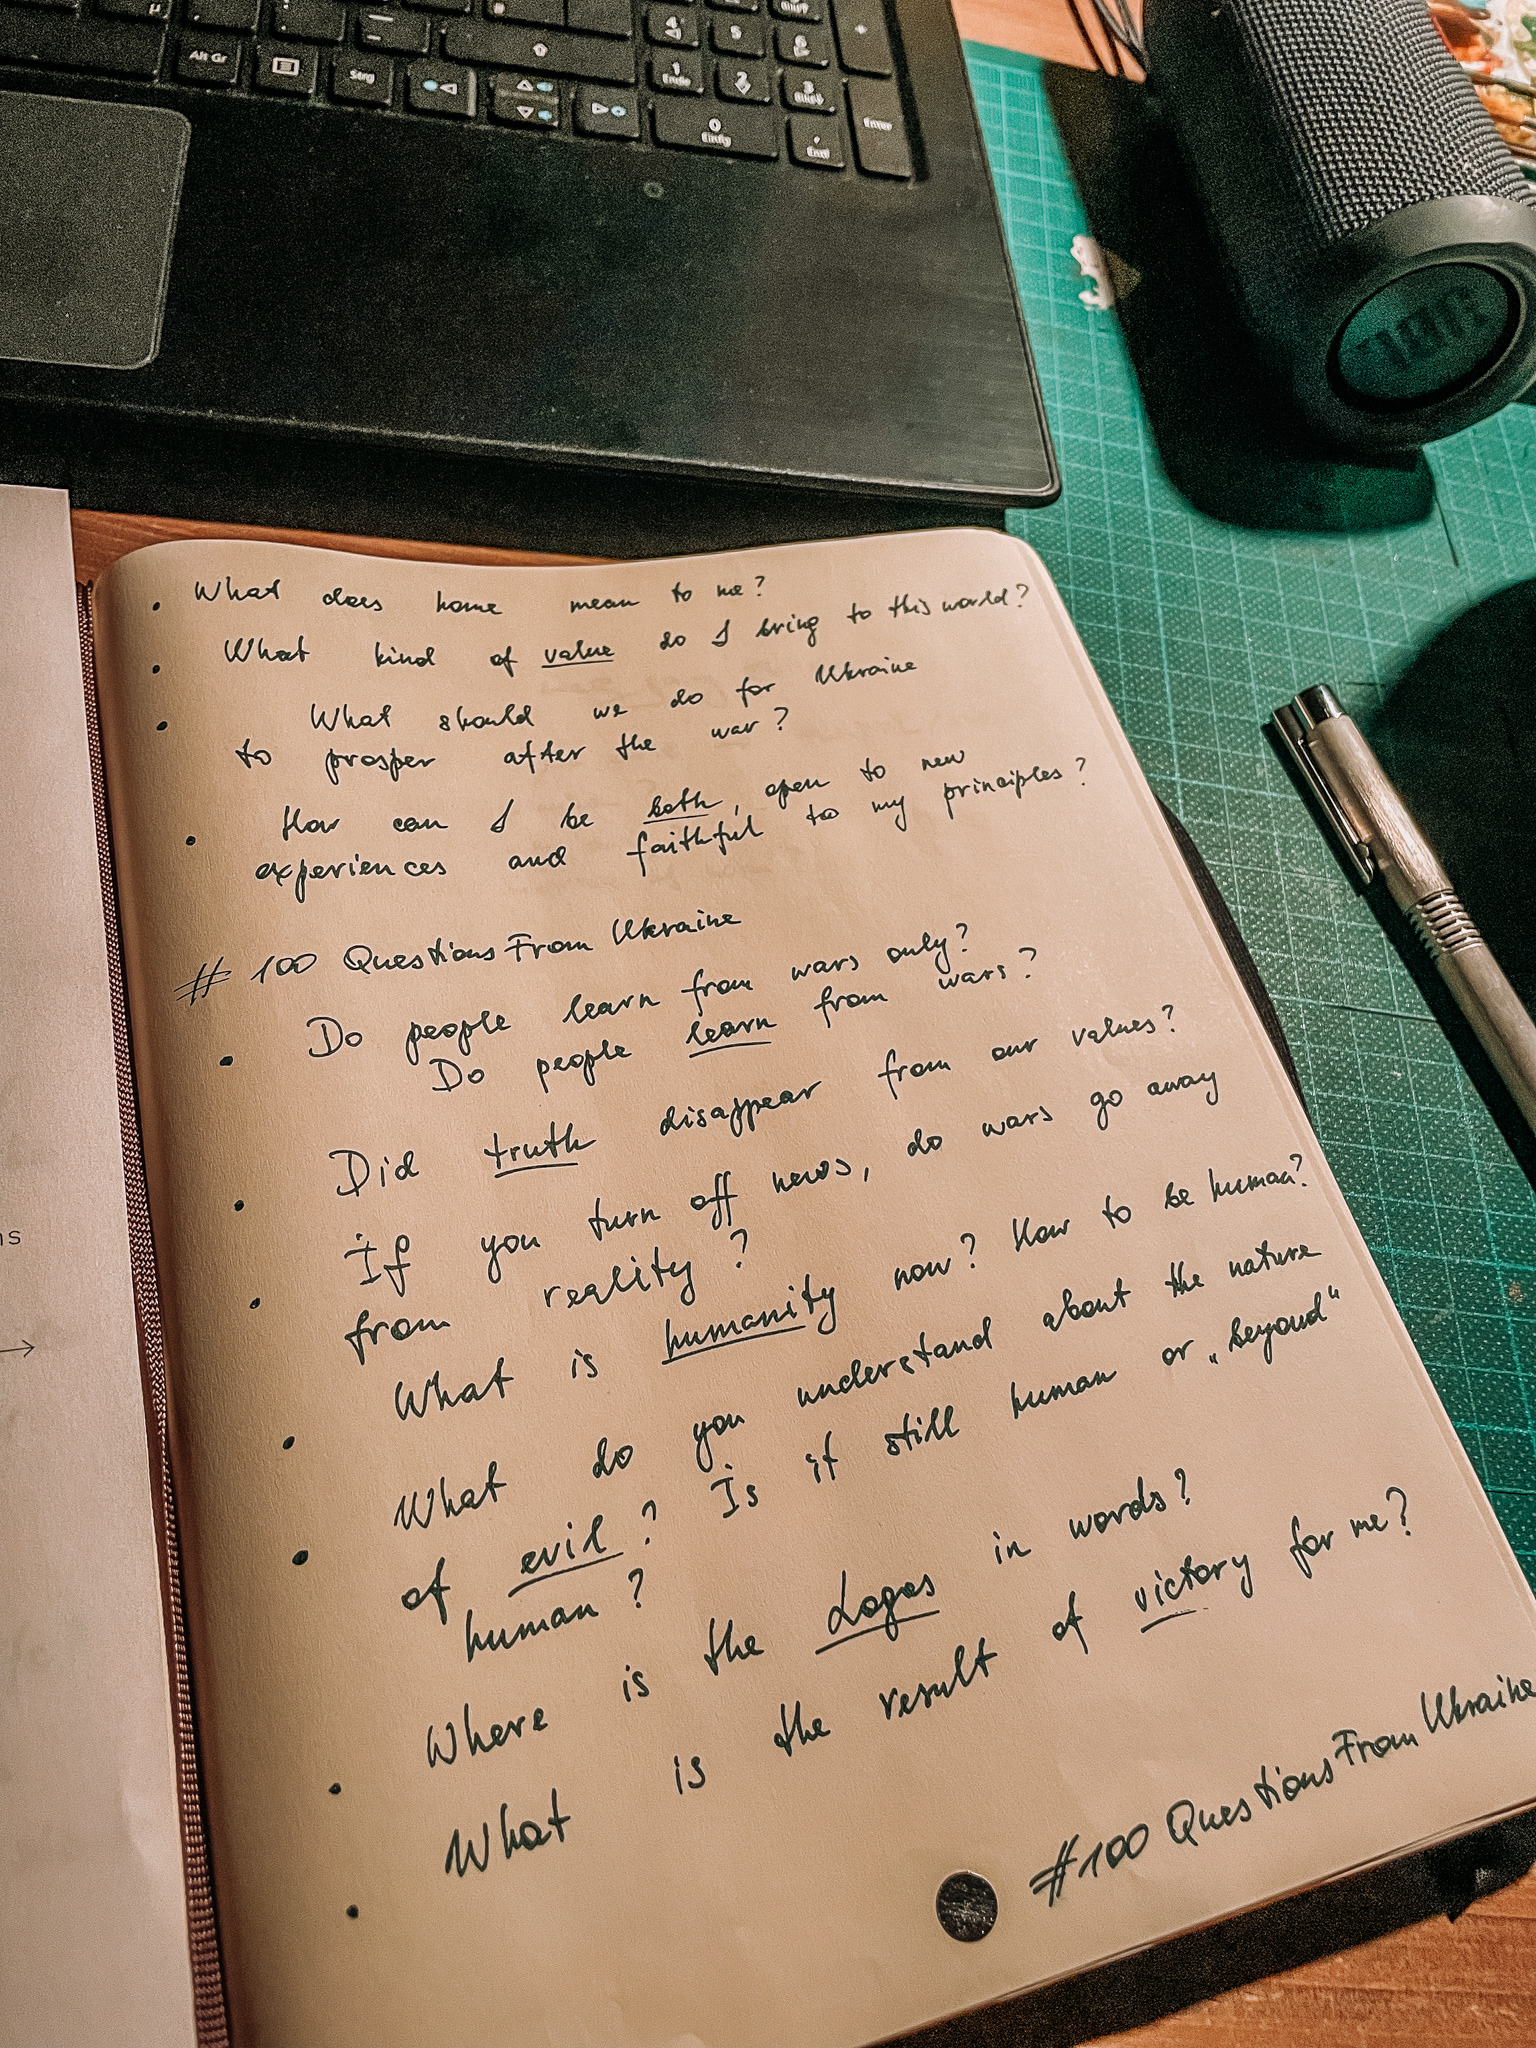 Alt Gr
Strg
4
5
6
+
1
Ende
2
3
Bild↓
0
Einfg
,
Entf
Enter
JBL
• What does home mean to me?
• What kind of value do I bring to this world?
• What should we do for Ukraine
to prosper after the war?
• How can I be both, open to new
experiences and faithful to my principles?
# 100 QuestionsFrom Ukraine
• Do people learn from wars only?
Do people learn from wars?
• Did truth disappear from our values?
• If you turn off news, do wars go away
from reality?
• What is humanity now? How to be human?
• What do you understand about the nature
of evil? Is it still human or „beyond“
human?
• Where is the Logos in words?
• What is the result of victory for me?
#100 QuestionsFrom Ukraine
ns
→